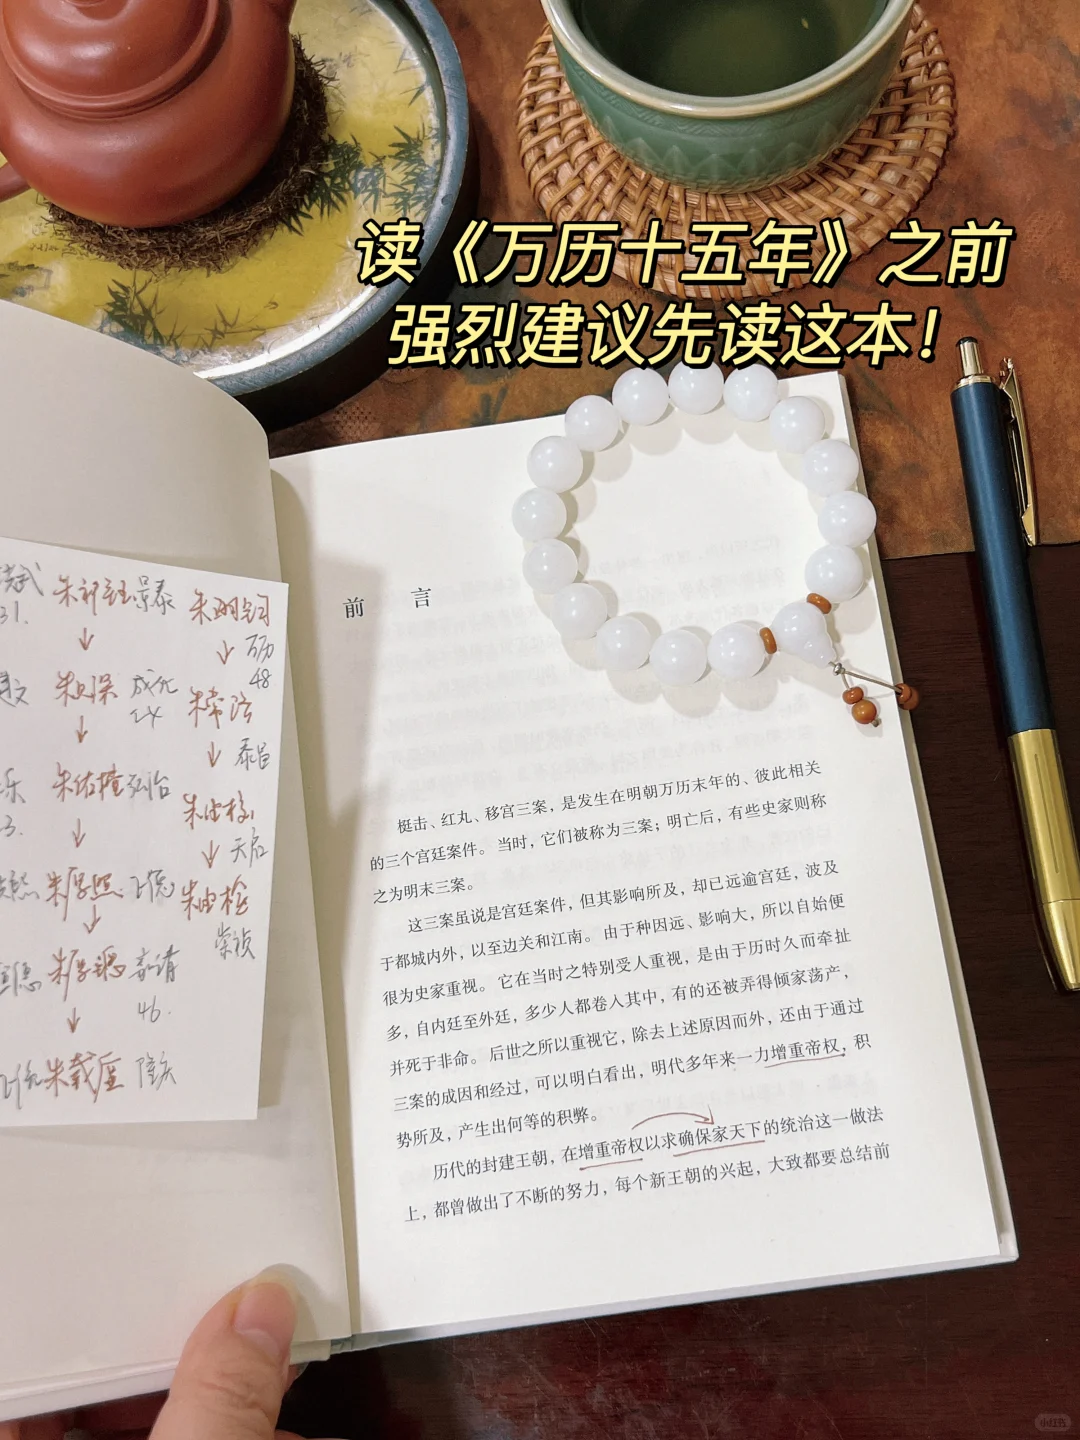 读《万历十五年》之前
强烈建议先读这本！
前言
梃击、红丸、移宫三案，是发生在明朝万历末年的、彼此相关
的三个宫廷案件。当时，它们被称为三案；明亡后，有些史家则称
之为明末三案。
这三案虽说是宫廷案件，但其影响所及，却已远逾宫廷，波及
于都城内外，以至边关和江南。由于种因远、影响大，所以自始便
很为史家重视。它在当时之特别受人重视，是由于历时久而牵扯
多，自内廷至外廷，多少人都卷入其中，有的还被弄得倾家荡产，
并死于非命。后世之所以重视它，除去上述原因而外，还由于通过
三案的成因和经过，可以明白看出，明代多年来一力增重帝权，积
势所及，产生出何等的积弊。
历代的封建王朝，在增重帝权以求确保家天下的统治这一做法
上，都曾做出了不断的努力，每个新王朝的兴起，大致都要总结前
31.
朱祁钰 景泰
↓
朱见深 成化
↓
朱佑樘 弘治
↓
朱厚照
↓
朱厚熜 嘉靖
46.
↓
朱载垕 隆庆
朱翊钧
↓ 万历
48
朱常洛
↓ 泰昌
朱由校
↓ 天启
朱由检
崇祯
小红书